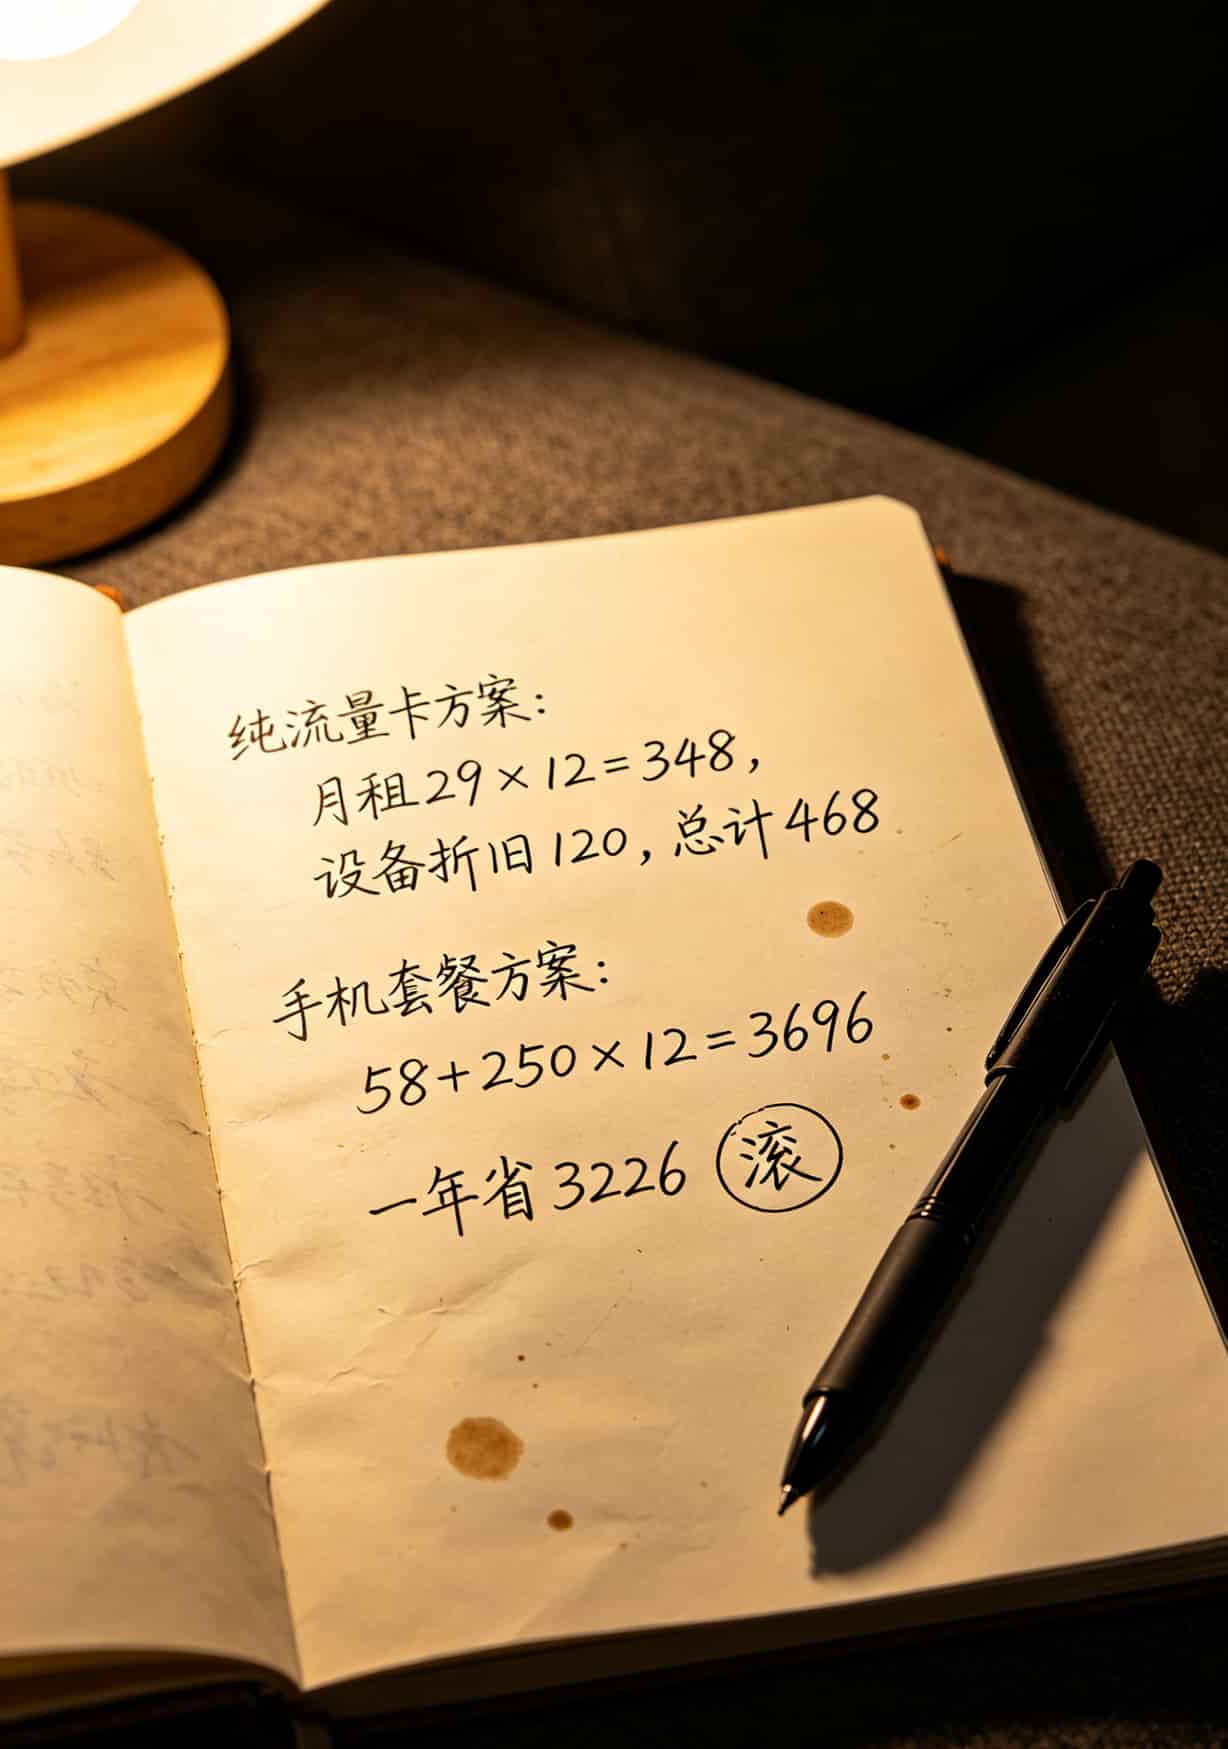 纯流量卡方案：
月租29×12=348，
设备折旧120，总计468
手机套餐方案：
58+250×12=3696
一年省3226 滚